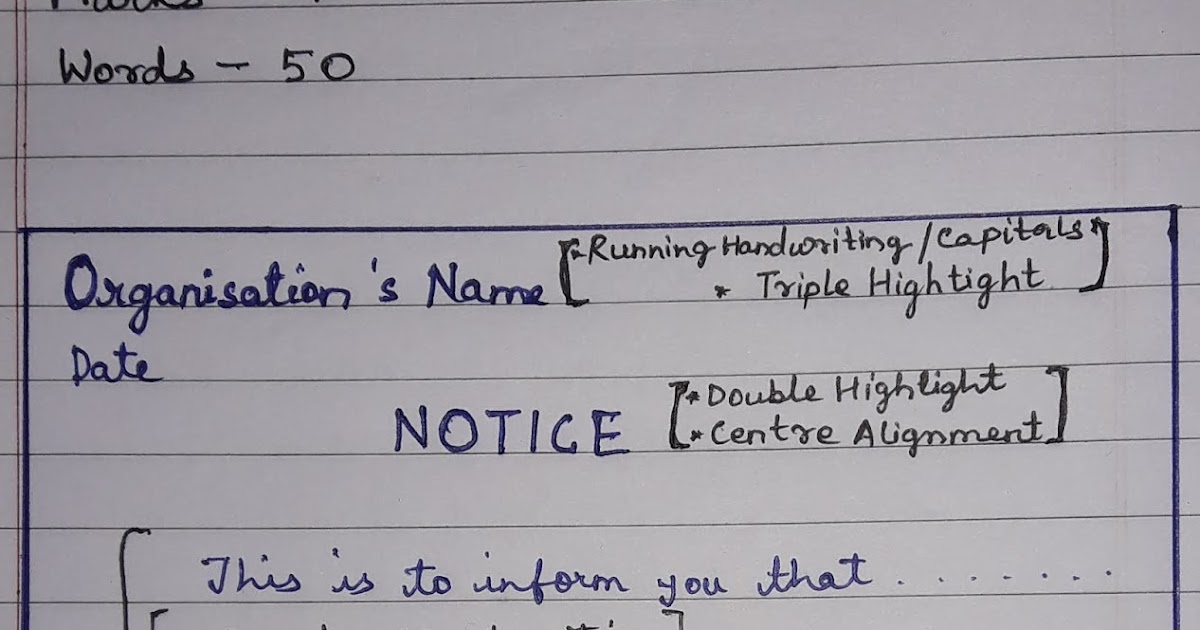 Words - 50
Organisation's Name [* Running Handwriting / Capitals *
* Triple Hightight ]
Date
NOTICE [* Double Highlight
* Centre Alignment ]
[ This is to inform you that ........